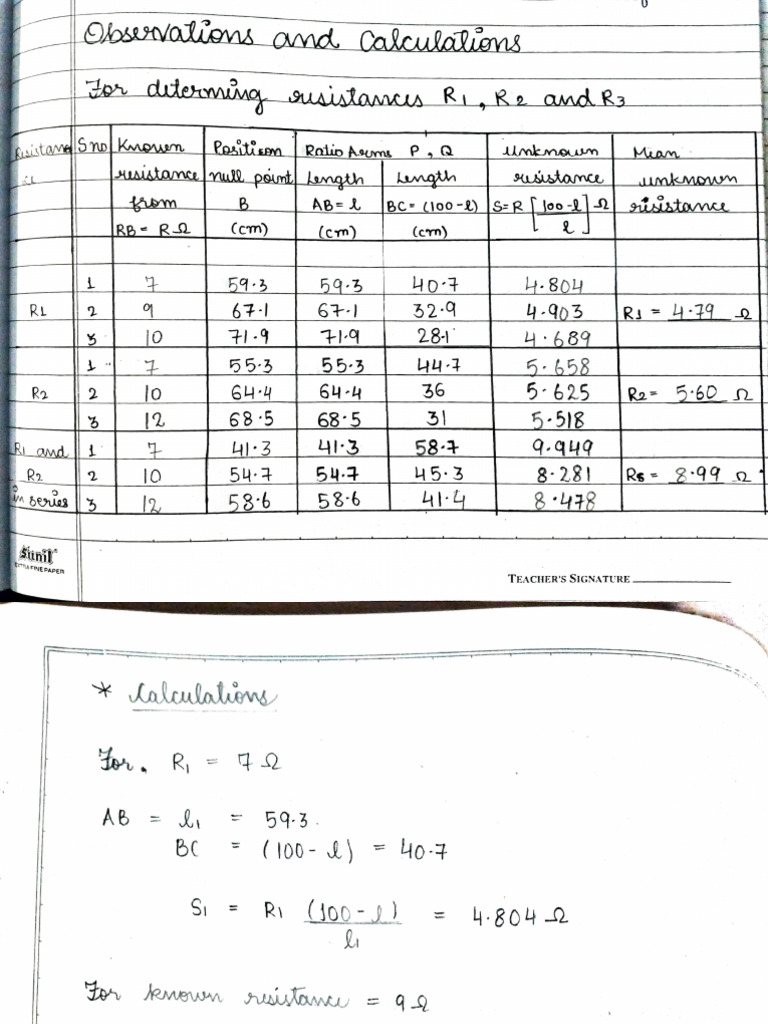 Observations and Calculations
For determing resistances R1, R2 and R3
Resistance S no Known Position Ratio Arms P, Q Unknown Mean
resistance null point Length Length resistance unknown
from B AB = l BC = (100-l) S=R [100-l / l] Ω resistance
RB = R Ω (cm) (cm) (cm)
1 7 59.3 59.3 40.7 4.804
R1 2 9 67.1 67.1 32.9 4.903 R1 = 4.79 Ω
3 10 71.9 71.9 28.1 4.689
1 7 55.3 55.3 44.7 5.658
R2 2 10 64.4 64.4 36 5.625 R2= 5.60 Ω
3 12 68.5 68.5 31 5.518
R1 and 1 7 41.3 41.3 58.7 9.949
R2 2 10 54.7 54.7 45.3 8.281 Rs = 8.99 Ω
in series 3 12 58.6 58.6 41.4 8.478
Sunil
EXTRA FINE PAPER
TEACHER'S SIGNATURE
* Calculations
For. R1 = 7 Ω
AB = l1 = 59.3.
BC = (100 - l) = 40.7
S1 = R1 (100-l) / l1 = 4.804 Ω
For known resistance = 9 Ω